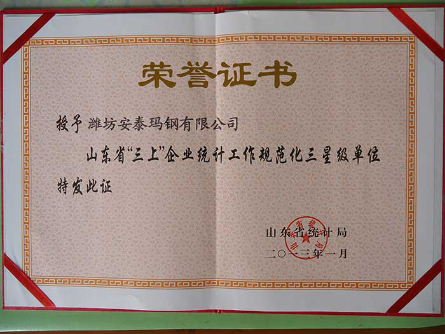 荣誉证书
授予 潍坊安泰玛钢有限公司
山东省“三上”企业统计工作规范化三星级单位
特发此证
山东省统计局
二〇一三年一月